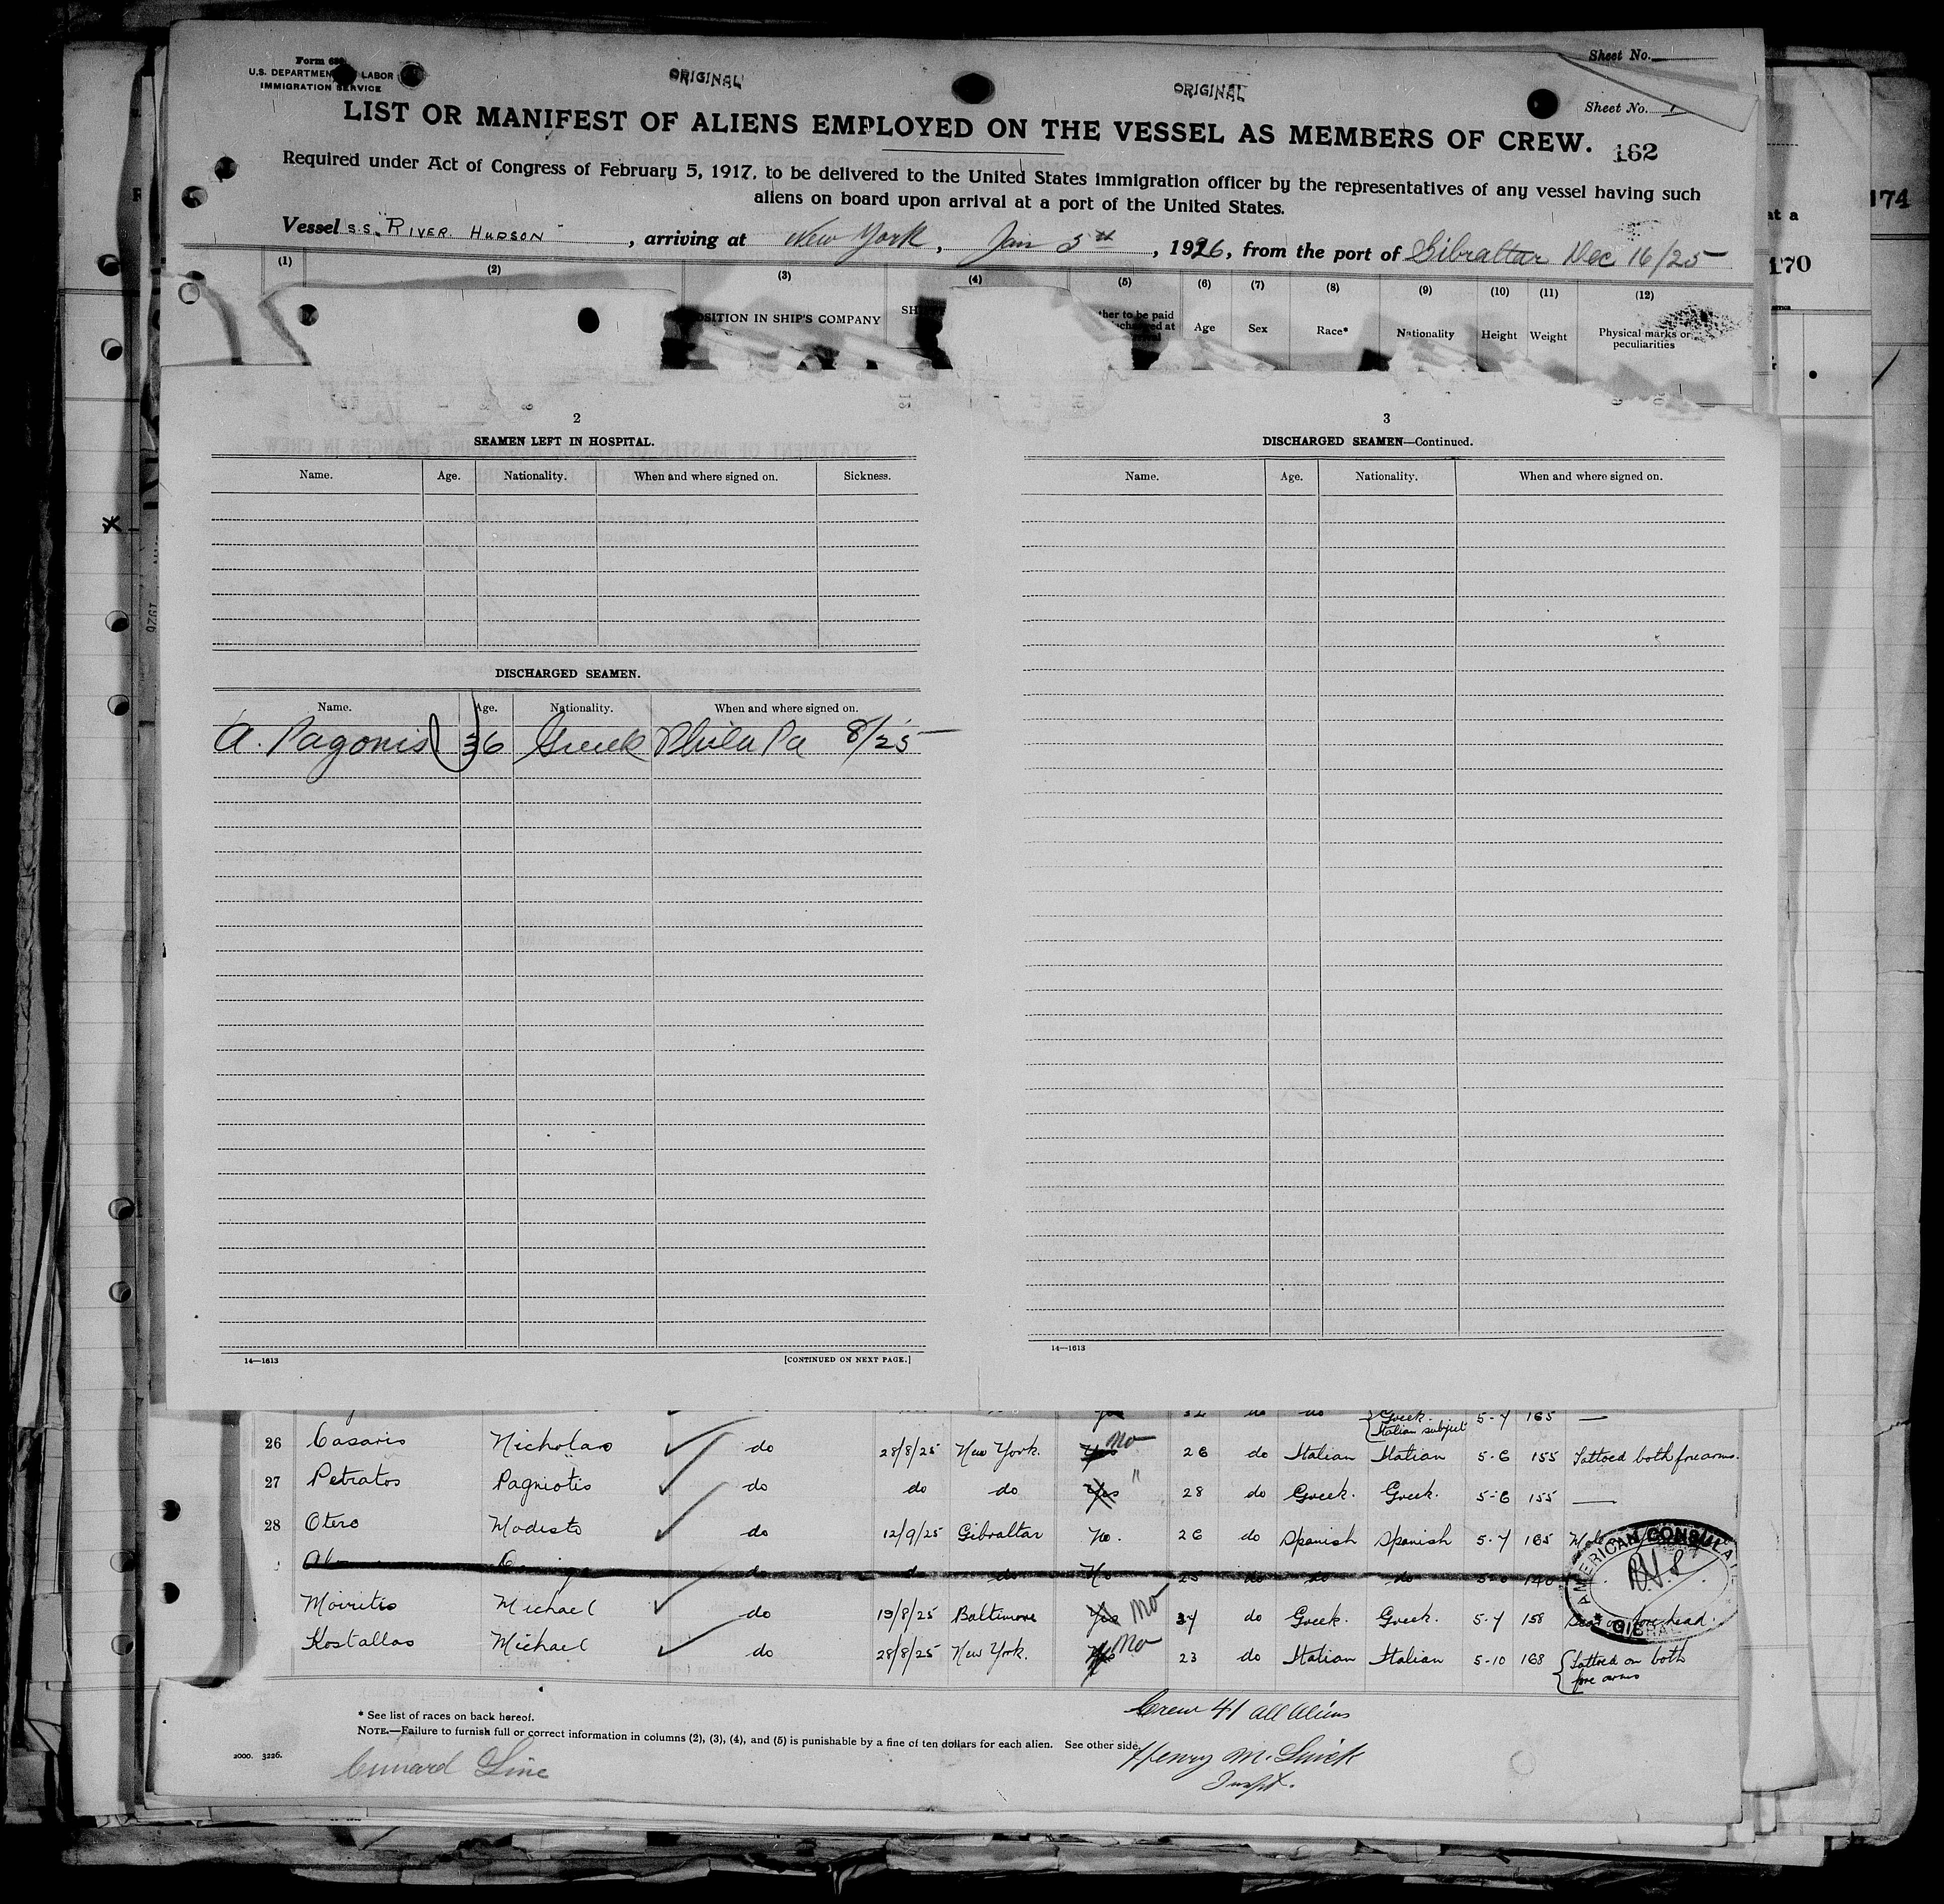 Form 680
U.S. DEPARTMENT OF LABOR
IMMIGRATION SERVICE
ORIGINAL
ORIGINAL
Sheet No.
Sheet No.
LIST OR MANIFEST OF ALIENS EMPLOYED ON THE VESSEL AS MEMBERS OF CREW.
162
174
Required under Act of Congress of February 5, 1917, to be delivered to the United States immigration officer by the representatives of any vessel having such
aliens on board upon arrival at a port of the United States.
at a
Vessel S.S. "RIVER HUDSON", arriving at New York, Jan 5th, 1926, from the port of Gibraltar Dec 16/25
170
(1) (2) (3) (4) (5) (6) (7) (8) (9) (10) (11) (12)
POSITION IN SHIP'S COMPANY Age Sex Race* Nationality Height Weight Physical marks or peculiarities
2
SEAMEN LEFT IN HOSPITAL.
Name. Age. Nationality. When and where signed on. Sickness.
DISCHARGED SEAMEN.
Name. Age. Nationality. When and where signed on.
A. Pagonis 36 Greek Phila Pa 8/25
14—1613
[CONTINUED ON NEXT PAGE.]
3
DISCHARGED SEAMEN—Continued.
Name. Age. Nationality. When and where signed on.
14—1613
Greek. Italian subject 5-7 165 —
26 Casaris Nicholas do 28/8/25 New York. Yes No 26 do Italian Italian 5-6 155 Tattoed both forearms.
27 Petratos Pagniotis do do do Yes " 28 do Greek. Greek. 5-6 155 —
28 Otero Modesto do 12/9/25 Gibraltar No. 26 do Spanish Spanish 5-7 165
do do do No 25 do do do 140
Moiritis Michael do 19/8/25 Baltimore Yes No 37 do Greek. Greek. 5-7 158 forehead.
Kostallas Michael do 28/8/25 New York. Yes No 23 do Italian Italian 5-10 168 Tattoed on both fore arms
AMERICAN CONSULATE
GIBRALTAR
* See list of races on back hereof.
Crew 41 all aliens
NOTE.—Failure to furnish full or correct information in columns (2), (3), (4), and (5) is punishable by a fine of ten dollars for each alien. See other side.
2000. 3226.
Cunard Line
Henry M.
Inspt.